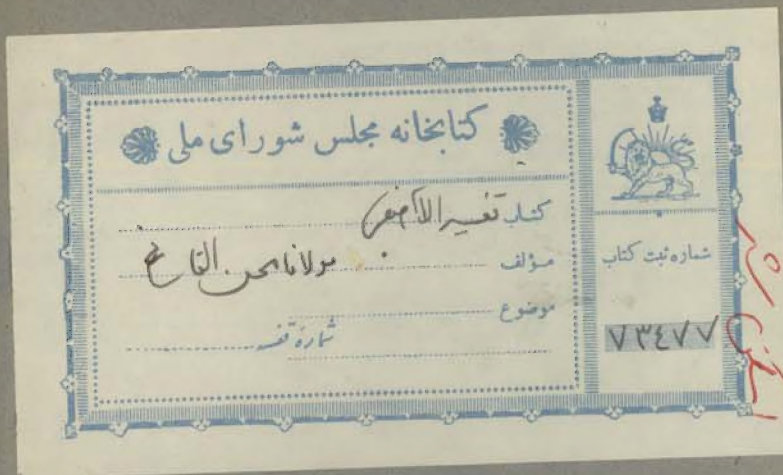 کتابخانه مجلس شورای ملی
کتاب تفسیر الاصفی
مؤلف مولانا محسن
موضوع
شماره قفسه
شماره ثبت کتاب
۷۳۴۷۷